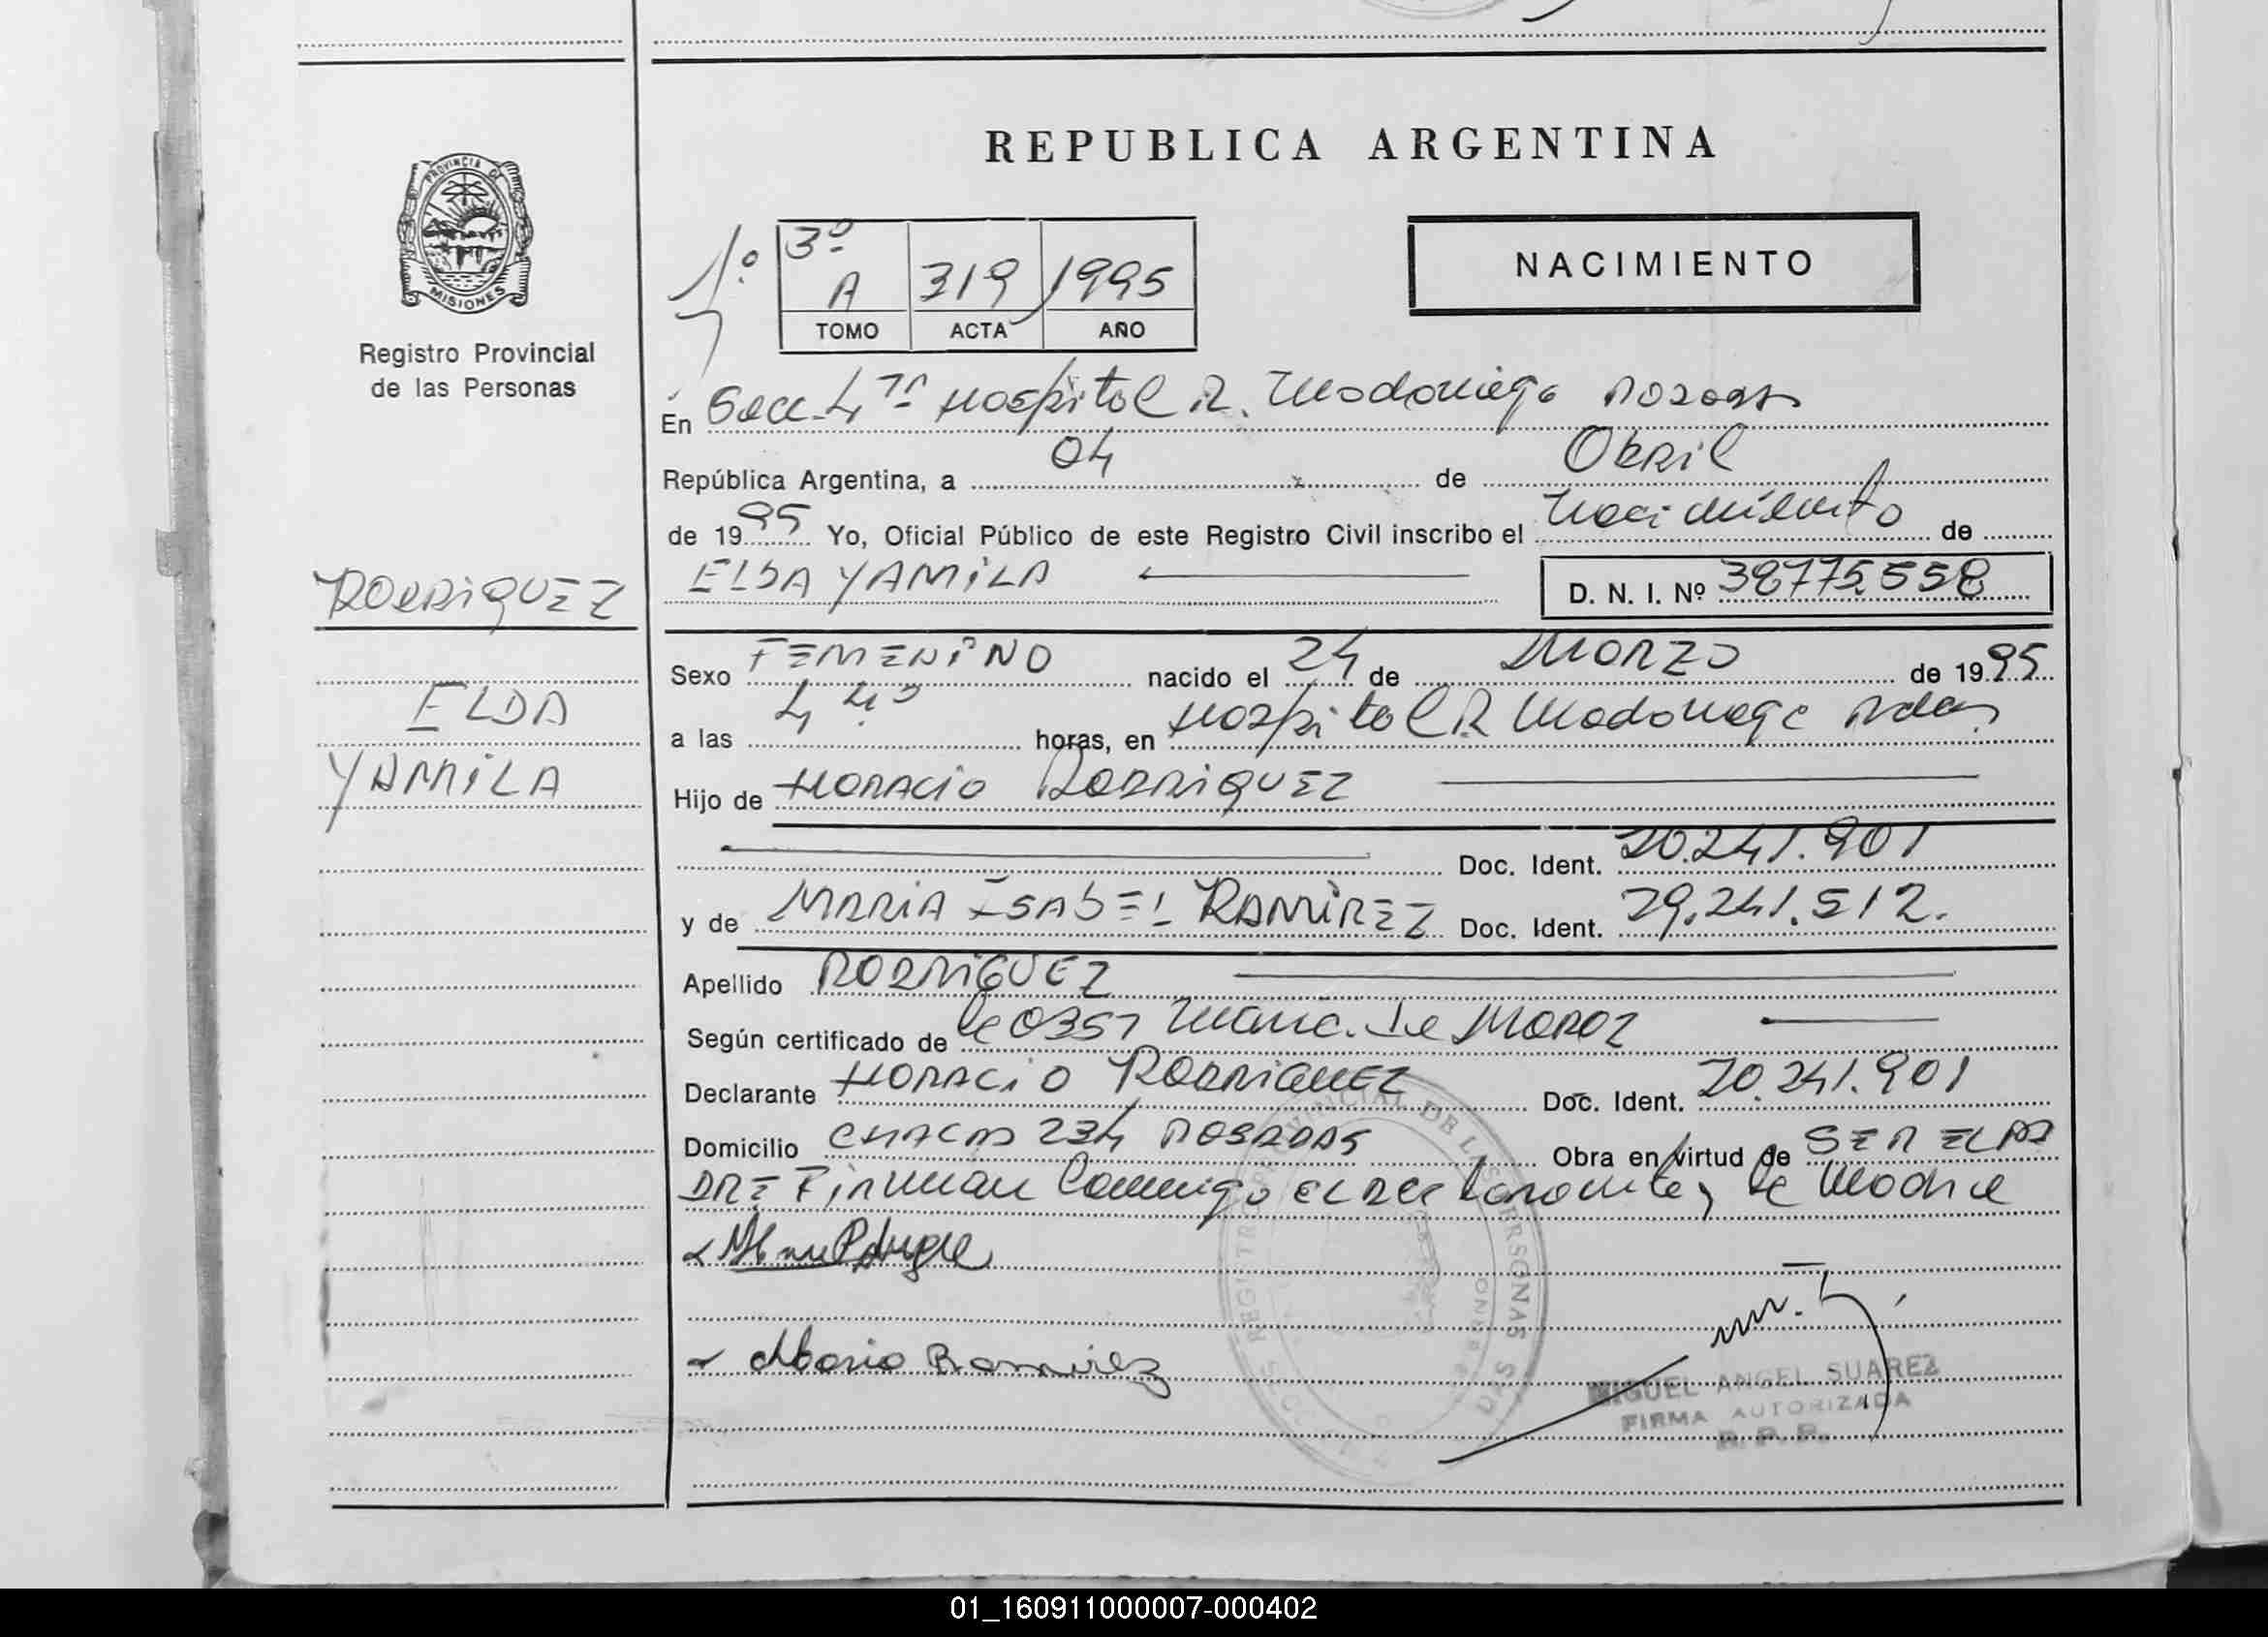 REPUBLICA ARGENTINA
PROVINCIA DE
MISIONES
Registro Provincial
de las Personas
1º
3º
A 319 1995
TOMO ACTA AÑO
NACIMIENTO
En Secc. 4ª Hospital R. Madariaga Posadas
República Argentina, a 04 de Abril
de 1995 Yo, Oficial Público de este Registro Civil inscribo el Nacimiento de
ELBA YAMILA
D. N. I. Nº 38775.558
RODRIGUEZ
ELDA
YAMILA
Sexo FEMENINO nacido el 24 de MARZO de 1995
a las 4 horas, en Hospital R Madariaga Pdas
Hijo de HORACIO RODRIGUEZ
Doc. Ident. 20.241.901
y de MARIA ISABEL RAMIREZ Doc. Ident. 29.241.512.
Apellido RODRIGUEZ
Según certificado de
Declarante HORACIO RODRIGUEZ Doc. Ident. 20.241.901
Domicilio CHACO 234 POSADAS Obra en virtud de SER EL PA
DRE Firman Conmigo el declarante y la Madre
Maria Ramirez
REGISTRO PROVINCIAL DE LAS PERSONAS
MIGUEL ANGEL SUAREZ
FIRMA AUTORIZADA
R. P. P.
01_160911000007-000402